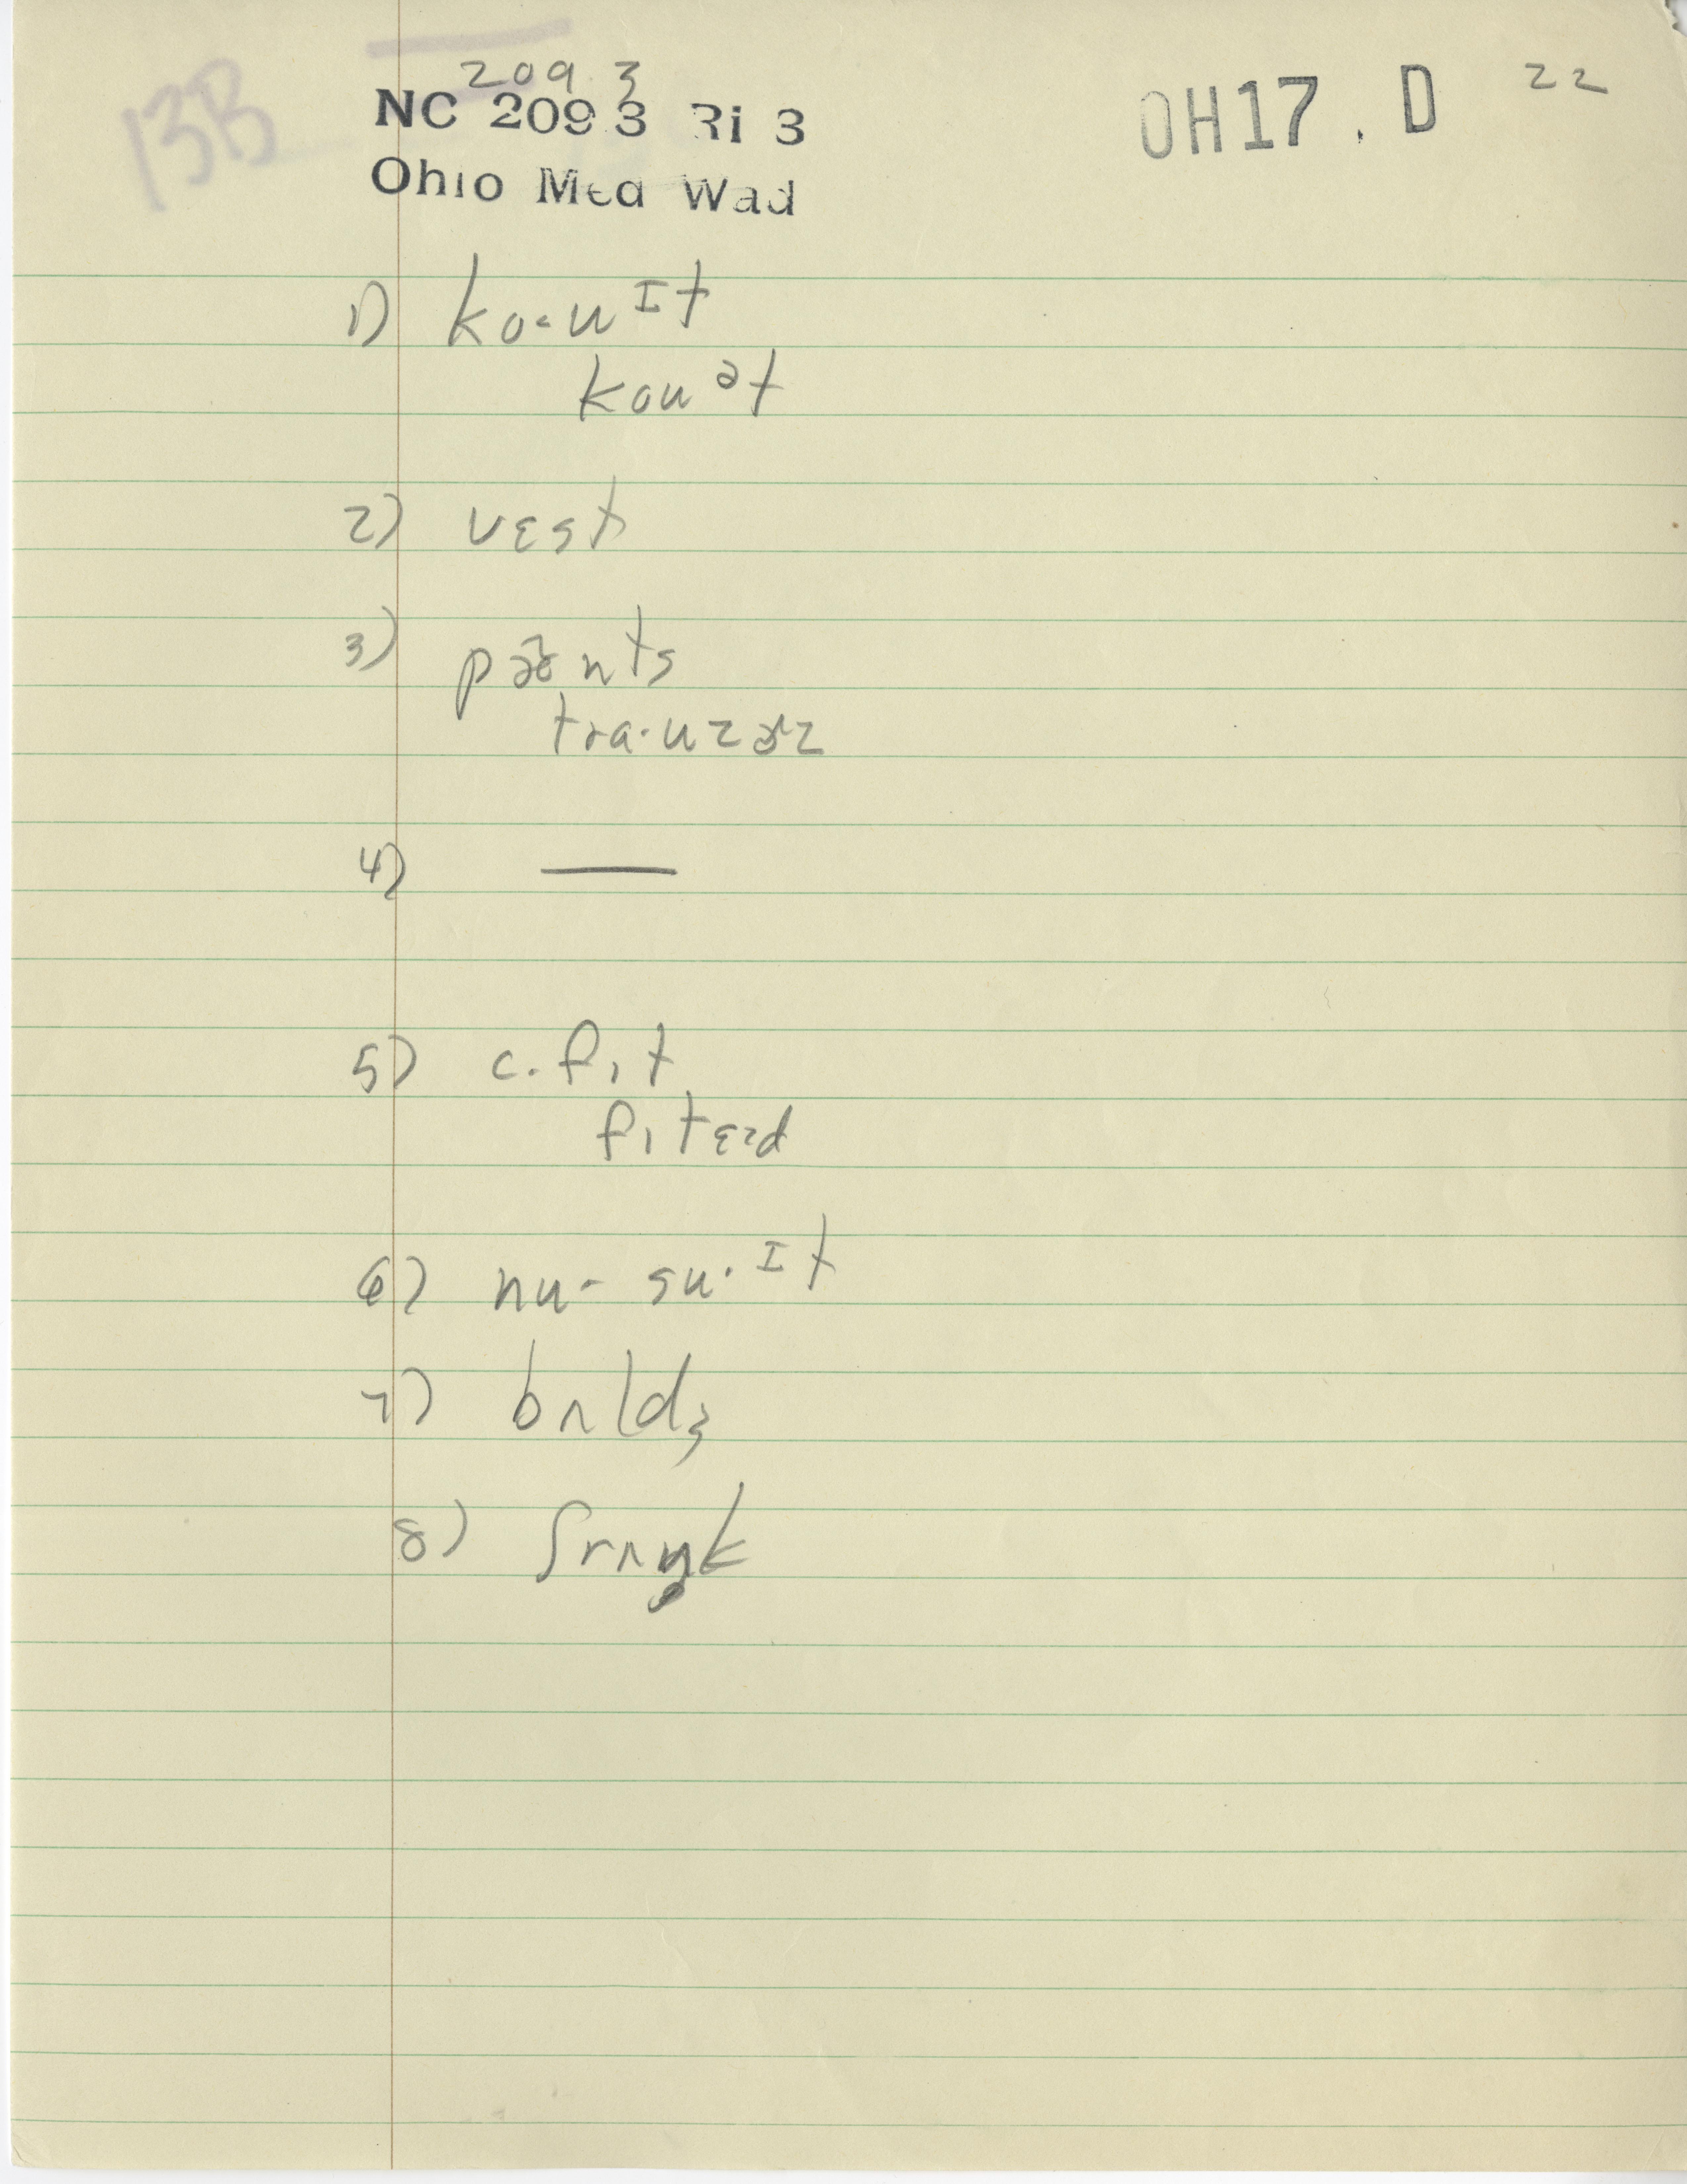 13B
209.3
NC 209 3 Ri 3
Ohio Med Wad
OH17.D 22
1) ko·uɪt
kouət
2) vɛst
3) pæ̃nts
tra·uzɚz
4) —
5) c. fɩt
fɩtɛd
6) nu· su·ɪt
7) bʌldʒ
8) ʃrʌŋk